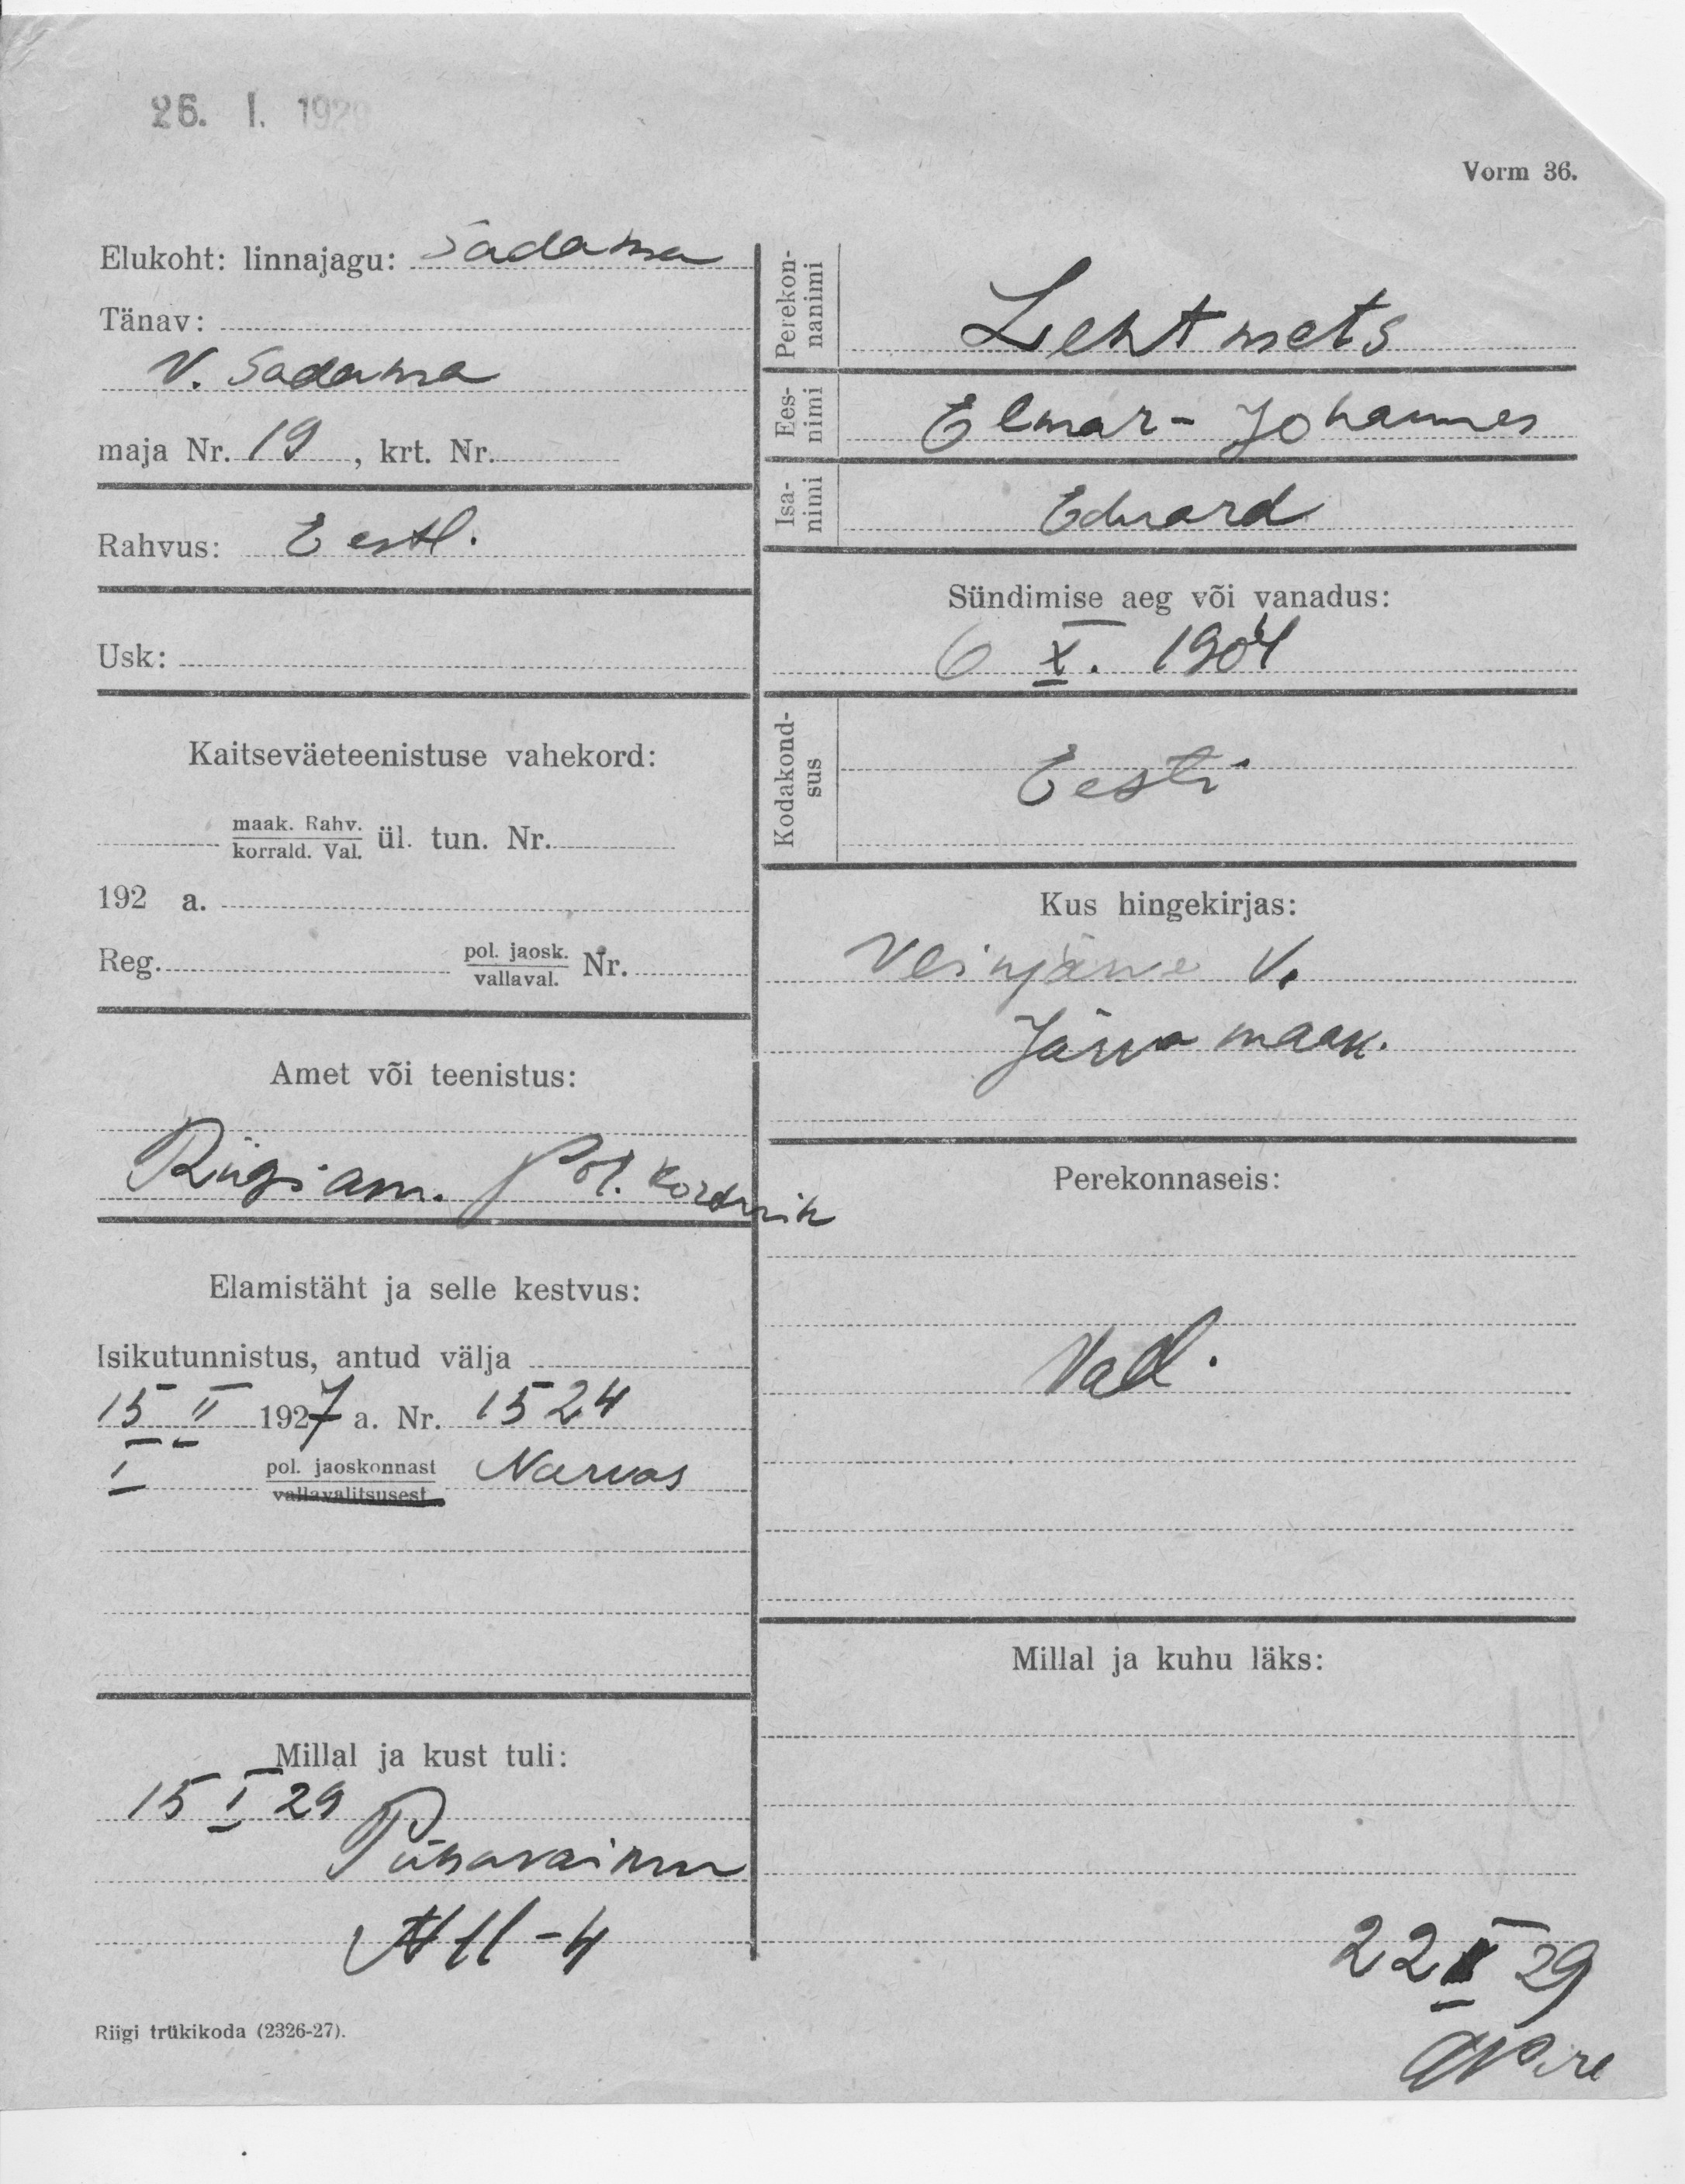 26. I. 1929
Vorm 36.
Elukoht: linnajagu: Sadama
Tänav:
V. Sadama
maja Nr. 19, krt. Nr.
Rahvus: Eestl.
Usk:
Kaitseväeteenistuse vahekord:
maak. Rahv.
korrald. Val. ül. tun. Nr.
192 a.
Reg. pol. jaosk.
vallaval. Nr.
Amet või teenistus:
Riigi am. Pol. kordnik
Elamistäht ja selle kestvus:
Isikutunnistus, antud välja
15 II 1927 a. Nr. 1524
I pol. jaoskonnast Narvas
vallavalitsusest
Millal ja kust tuli:
15 I 29
Pühavaimu
N 11-4
Riigi trükikoda (2326-27).
Perekon-
nanimi
Lehtmets
Ees-
nimi
Elmar-Johannes
Isa-
nimi
Eduard
Sündimise aeg või vanadus:
6 X. 1904
Kodakond-
sus
Eesti
Kus hingekirjas:
Veinjärve v.
Järva maak.
Perekonnaseis:
Val.
Millal ja kuhu läks:
22 I 29